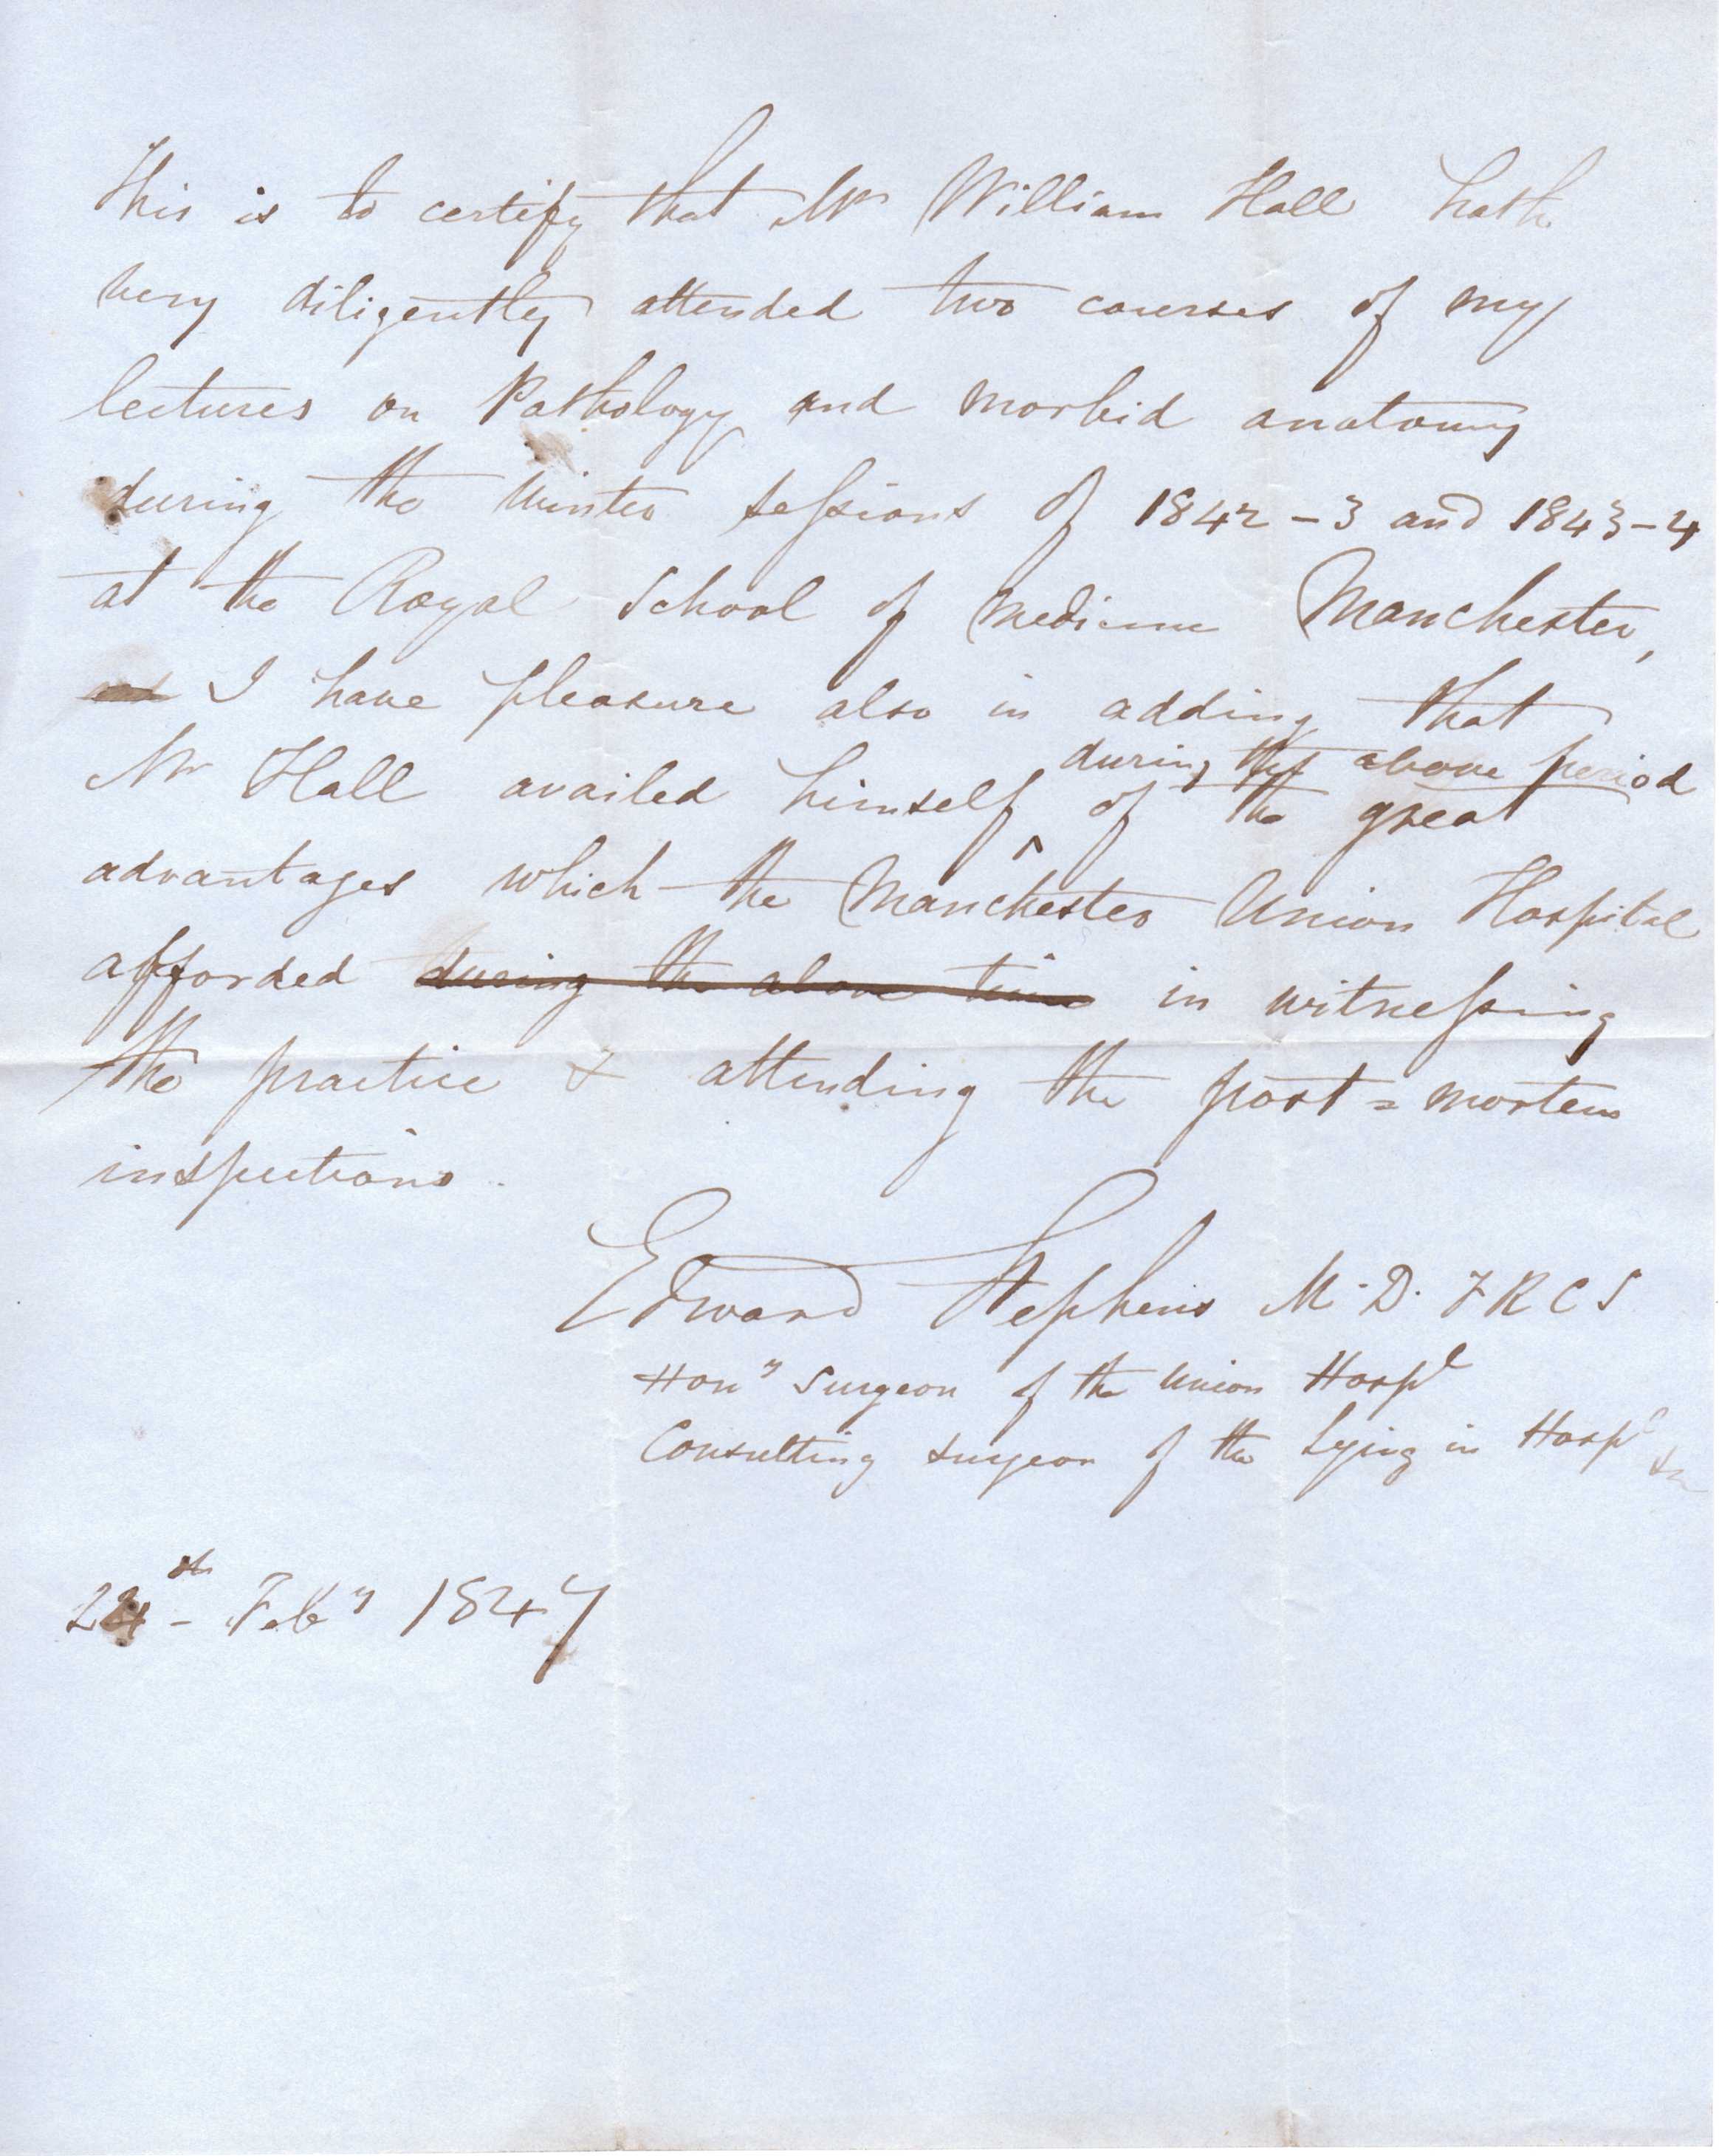 This is to certify that Mr William Hall hath
very diligently attended two courses of my
lectures on Pathology and morbid anatomy
during the winter sessions of 1842-3 and 1843-4
at the Royal School of Medicine Manchester,
I have pleasure also in adding that
during the above period
Mr Hall availed himself ^ of the great
advantages which the Manchester Union Hospital
afforded during the above time in witnessing
the practice & attending the post=mortem
inspections.
Edward Stephens M.D. F R C S
Hony Surgeon of the Union Hospl
Consulting surgeon of the Lying in Hospl &c
24th Feby 1847